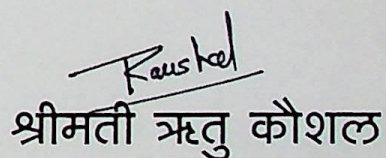 Kaushal
श्रीमती ऋतु कौशल